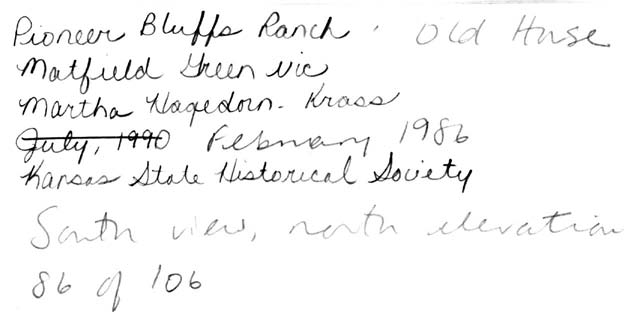 Pioneer Bluffs Ranch. Old House
Matfield Green vic
Martha Hagedorn-Krass
July, 1990 February 1986
Kansas State Historical Society
South view, north elevation
86 of 106